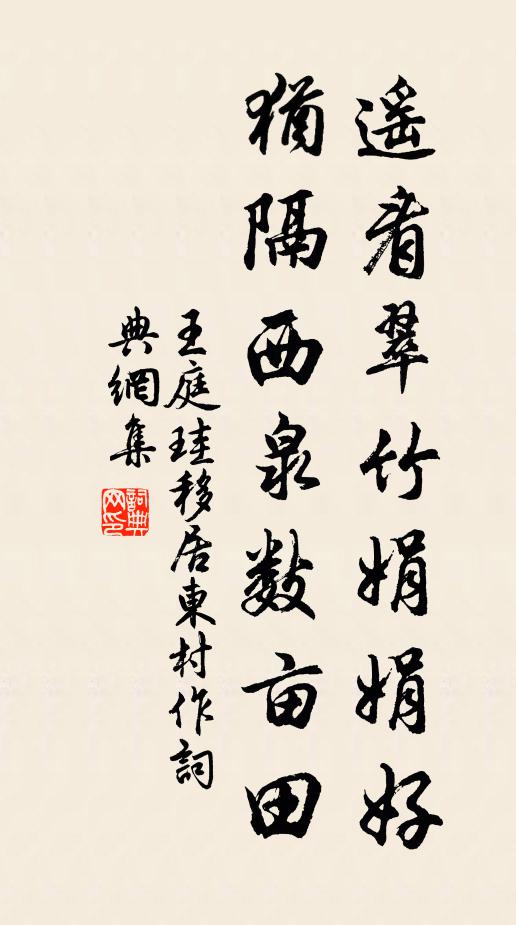 遥看翠竹娟娟好
猶隔西泉数亩田
王庭珪移居東村作詞
典網集
詞典網印